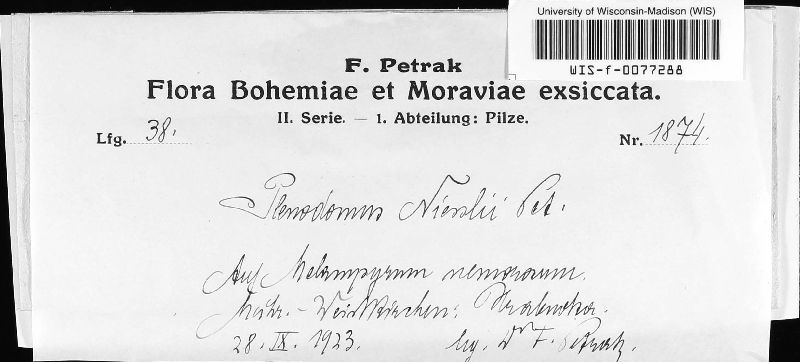 University of Wisconsin-Madison (WIS)
WIS-f-0077288
F. Petrak
Flora Bohemiae et Moraviae exsiccata.
II. Serie. — 1. Abteilung: Pilze.
Lfg. 38.
Nr. 1874.
Plenodomus Niesslii Pet.
Auf Melampyrum nemorosum.
Mähr.-Weisskirchen: Hrabuvka.
28. IX. 1923. leg. Dr F. Petrak.